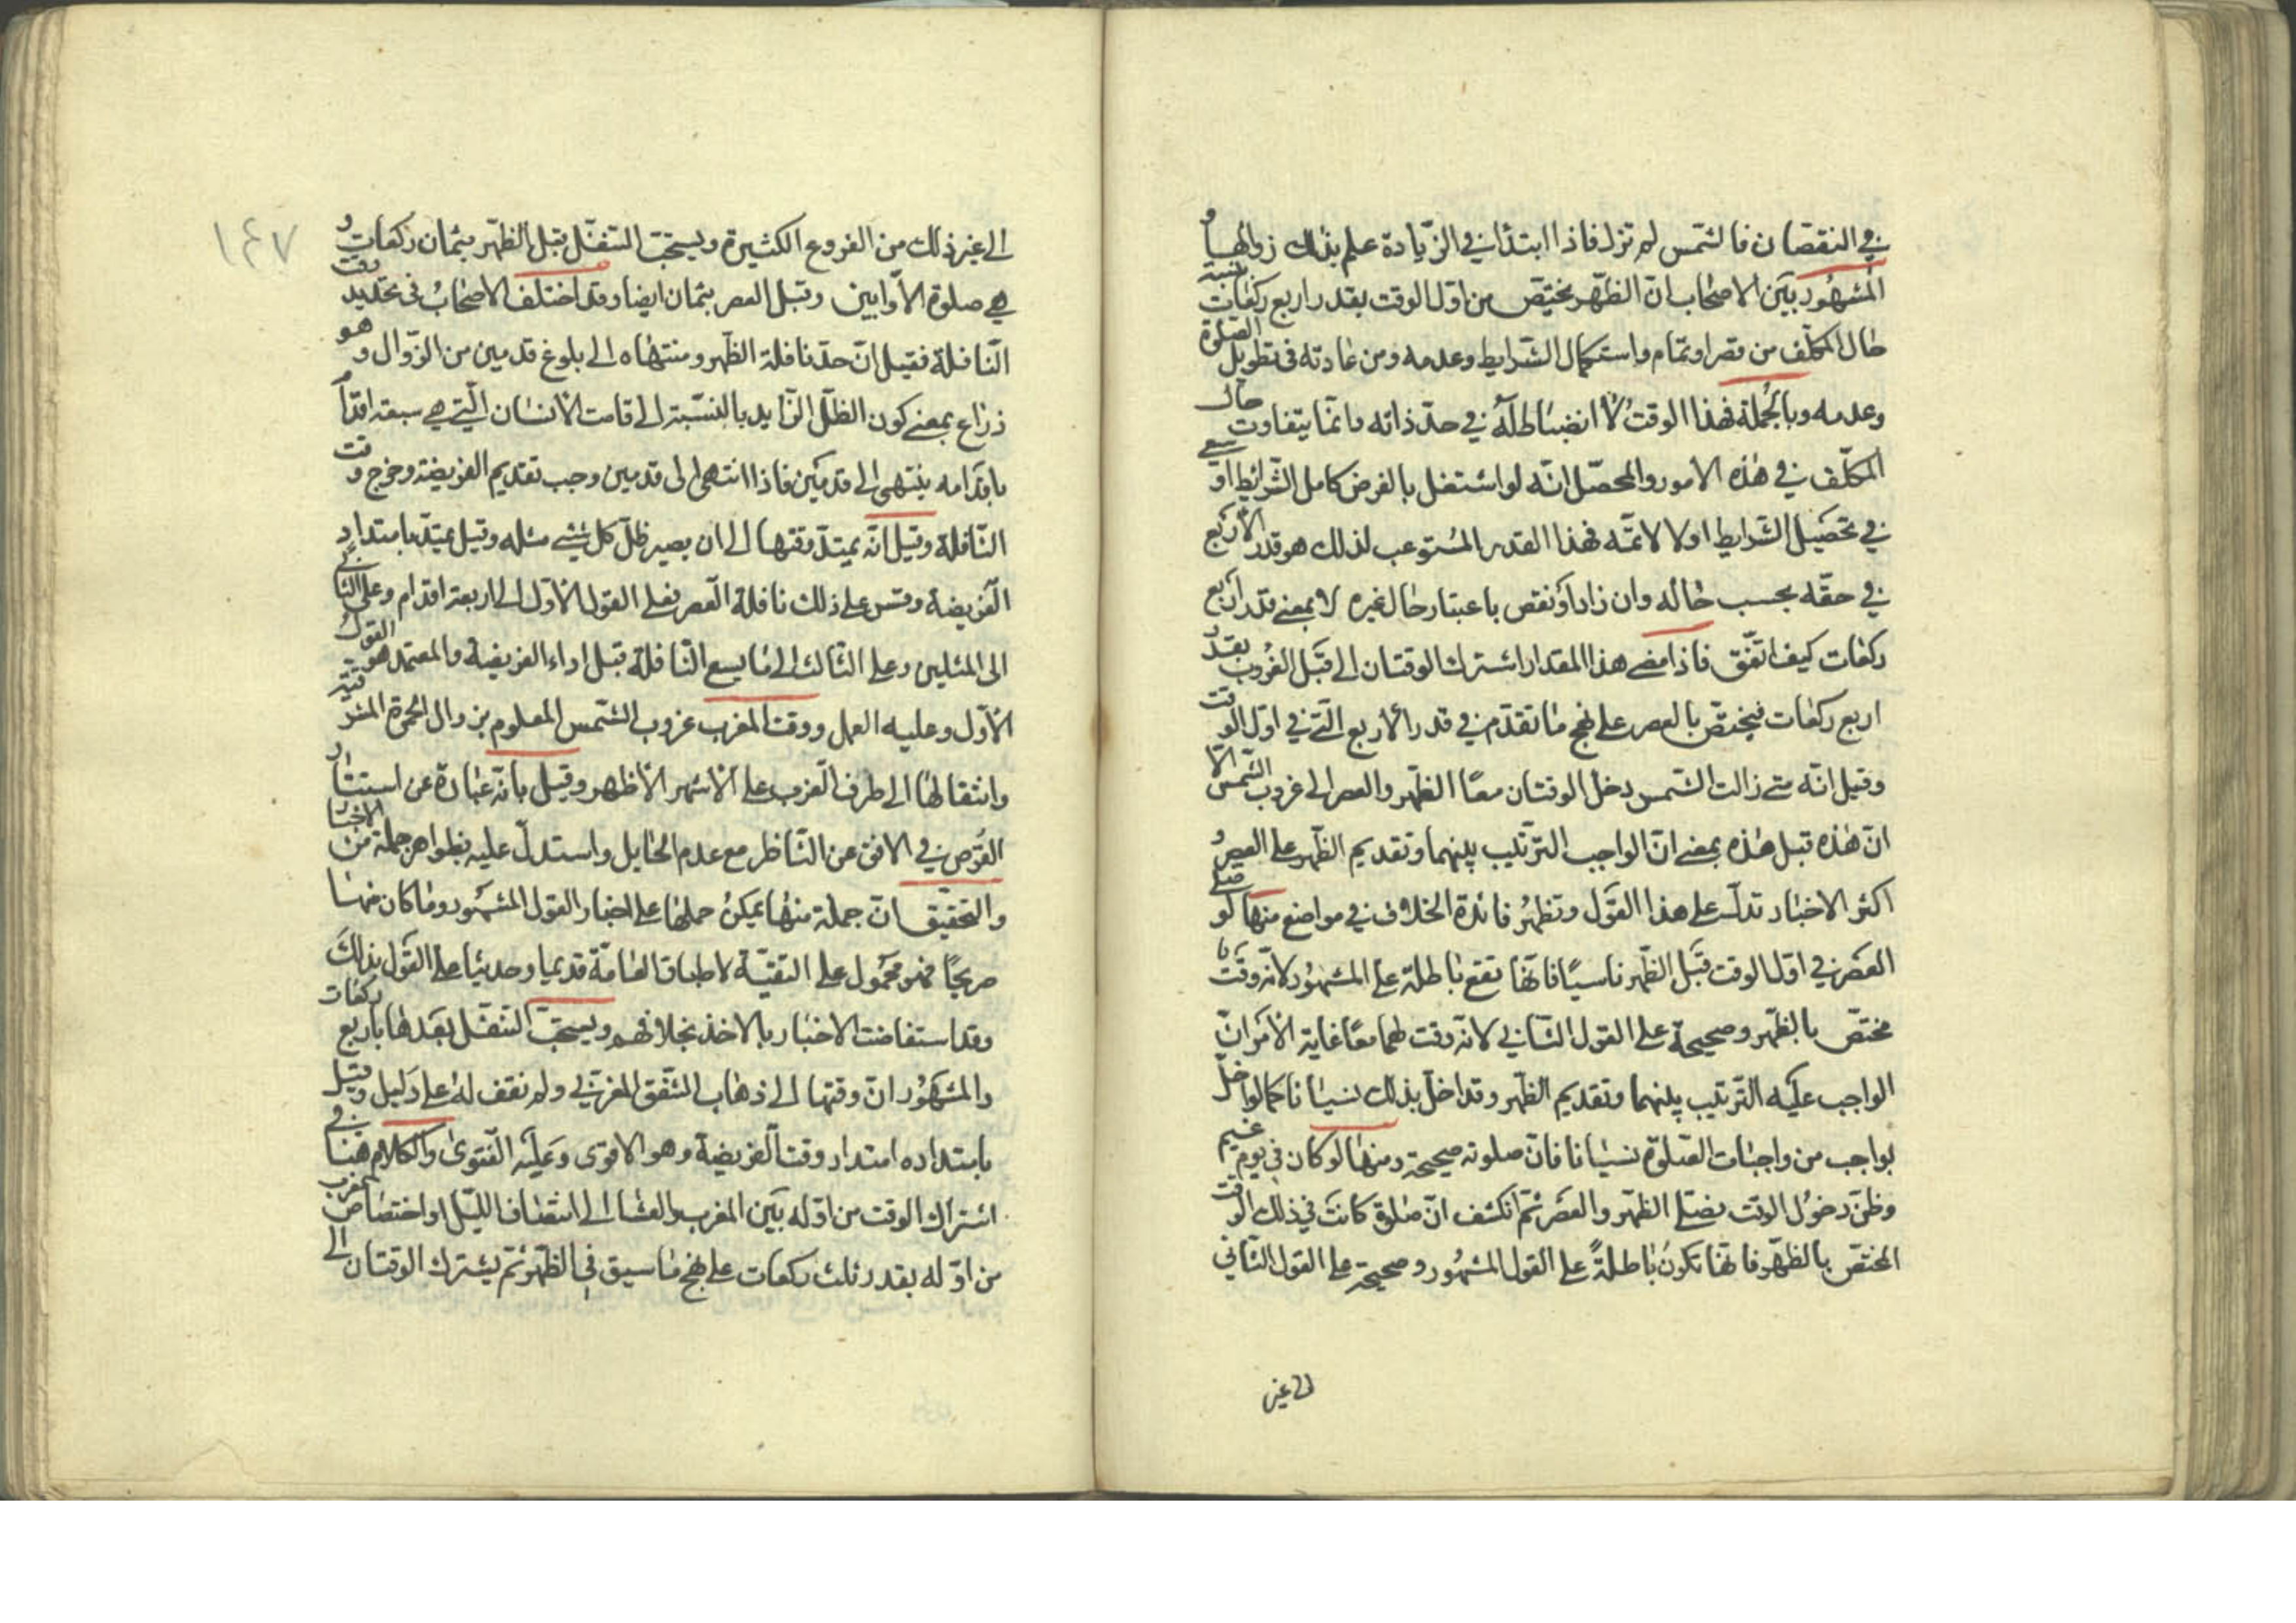 في النقصان فالشمس لم تزل فاذا ابتدأ في الزيادة علم بذلك زوالها و
المشهور بين الاصحاب ان الظهر يختص من اول الوقت بقدر اربع ركعات بنسبة
حال المكلف من قصر او تمام واستكمال الشرايط وعدمه ومن عادته في تطويل الصلوة
وعدمه وبالجملة فهذا الوقت لا انضباط له في حد ذاته وانما يتفاوت حال
المكلف في هذه الامور والمحصل انه لو اشتغل بالفرض كامل الشرائط او سعى
في تحصيل الشرايط اولا لاتمه فهذا القدر المستوعب لذلك هو قدر الاربع
في حقه بحسب حاله وان زاد او نقص باعتبار حال غيره لا بمعنى قدر اربع
ركعات كيف اتفق فاذا مضى هذا المقدار اشترك الوقتان الى قبل الغروب بقدر
اربع ركعات فيختص بالعصر على نهج ما تقدم في قدر الاربع التي في اول الوقت
وقيل انه متى زالت الشمس دخل الوقتان معًا الظهر والعصر الى غروب الشمس الا
ان هذه قبل هذه بمعنى ان الواجب الترتيب بينهما وتقديم الظهر على العصر و
اكثر الاخبار تدل على هذا القول وتظهر فائدة الخلاف في مواضع منها لو صلى
العصر في اول الوقت قبل الظهر ناسيًا فانها تقع باطلة على المشهور لانه وقت
مختص بالظهر وصحيحة على القول الثاني لانه وقت لهما معًا غاية الامر ان
الواجب عليه الترتيب بينهما وتقديم الظهر وقد اخل بذلك نسيانا كما لو اخل
بواجب من واجبات الصلوة نسيانا فان صلوته صحيحة ومنها لو كان في يوم غيم
وظن دخول الوقت فصلى الظهر والعصر ثم انكشف ان صلوة كانت في ذلك الوقت
المختص بالظهر فانها تكون باطلةً على القول المشهور وصحيحة على القول الثاني
الى غير
١٤٧
الى غير ذلك من الفروع الكثيرة ويستحب التنفل قبل الظهر بثمان ركعات و
هي صلوة الاوابين وقبل العصر بثمان ايضا وقد اختلف الاصحاب في تحديد وقت
النافلة فقيل ان حد نافلة الظهر ومنتهاه الى بلوغ قدمين من الزوال وهو
ذراع بمعنى كون الظل الزايد بالنسبة الى قامت الانسان التي هي سبعة اقدام
باقدامه ينتهى الى قدمين فاذا انتهى الى قدمين وجب تقديم الفريضة وخرج وقت
النافلة وقيل انه يمتد وقتها الى ان يصير ظل كل شئ مثله وقيل يمتد بامتداد
الفريضة وقس على ذلك نافلة العصر فعلى القول الاول الى اربعة اقدام وعلى الثاني
الى المثلين وعلى الثالث الى ما يسع النافلة قبل اداء الفريضة والمعتمد هو القول
الاول وعليه العمل ووقت المغرب غروب الشمس المعلوم بزوال الحمرة المشرقية
وانتقالها الى طرف الغرب على الاشهر الاظهر وقيل بانه عبارة عن استتار
القرص في الافق عن الناظر مع عدم الحايل واستدل عليه بظواهر جملة من الاخبار
والتحقيق ان جملة منها يمكن حملها على اخبار القول المشهور وما كان منها
صريحًا فهو محمول على التقية لاطباق العامة قديما وحديثا على القول بذلك
وقد استفاضت الاخبار بالاخذ بخلافهم ويستحب التنفل بعدها باربع ركعات
والمشهور ان وقتها الى ذهاب الشفق المغربي ولم نقف له على دليل وقيل
بامتداده امتداد وقت الفريضة وهو الاقوى وعليه الفتوى والكلام هنا في
اشتراك الوقت من اوله بين المغرب والعشا الى انتصاف الليل او اختصاص المغرب
من اوله بقدر ثلث ركعات على نهج ما سبق في الظهر ثم يشترك الوقتان الى